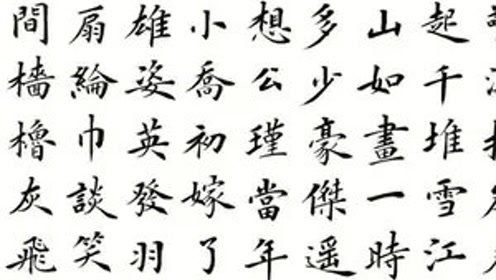 起千堆雪江
山如畫一時
多少豪傑遥
想公瑾當年
小喬初嫁了
雄姿英發羽
扇綸巾談笑
間檣櫓灰飛